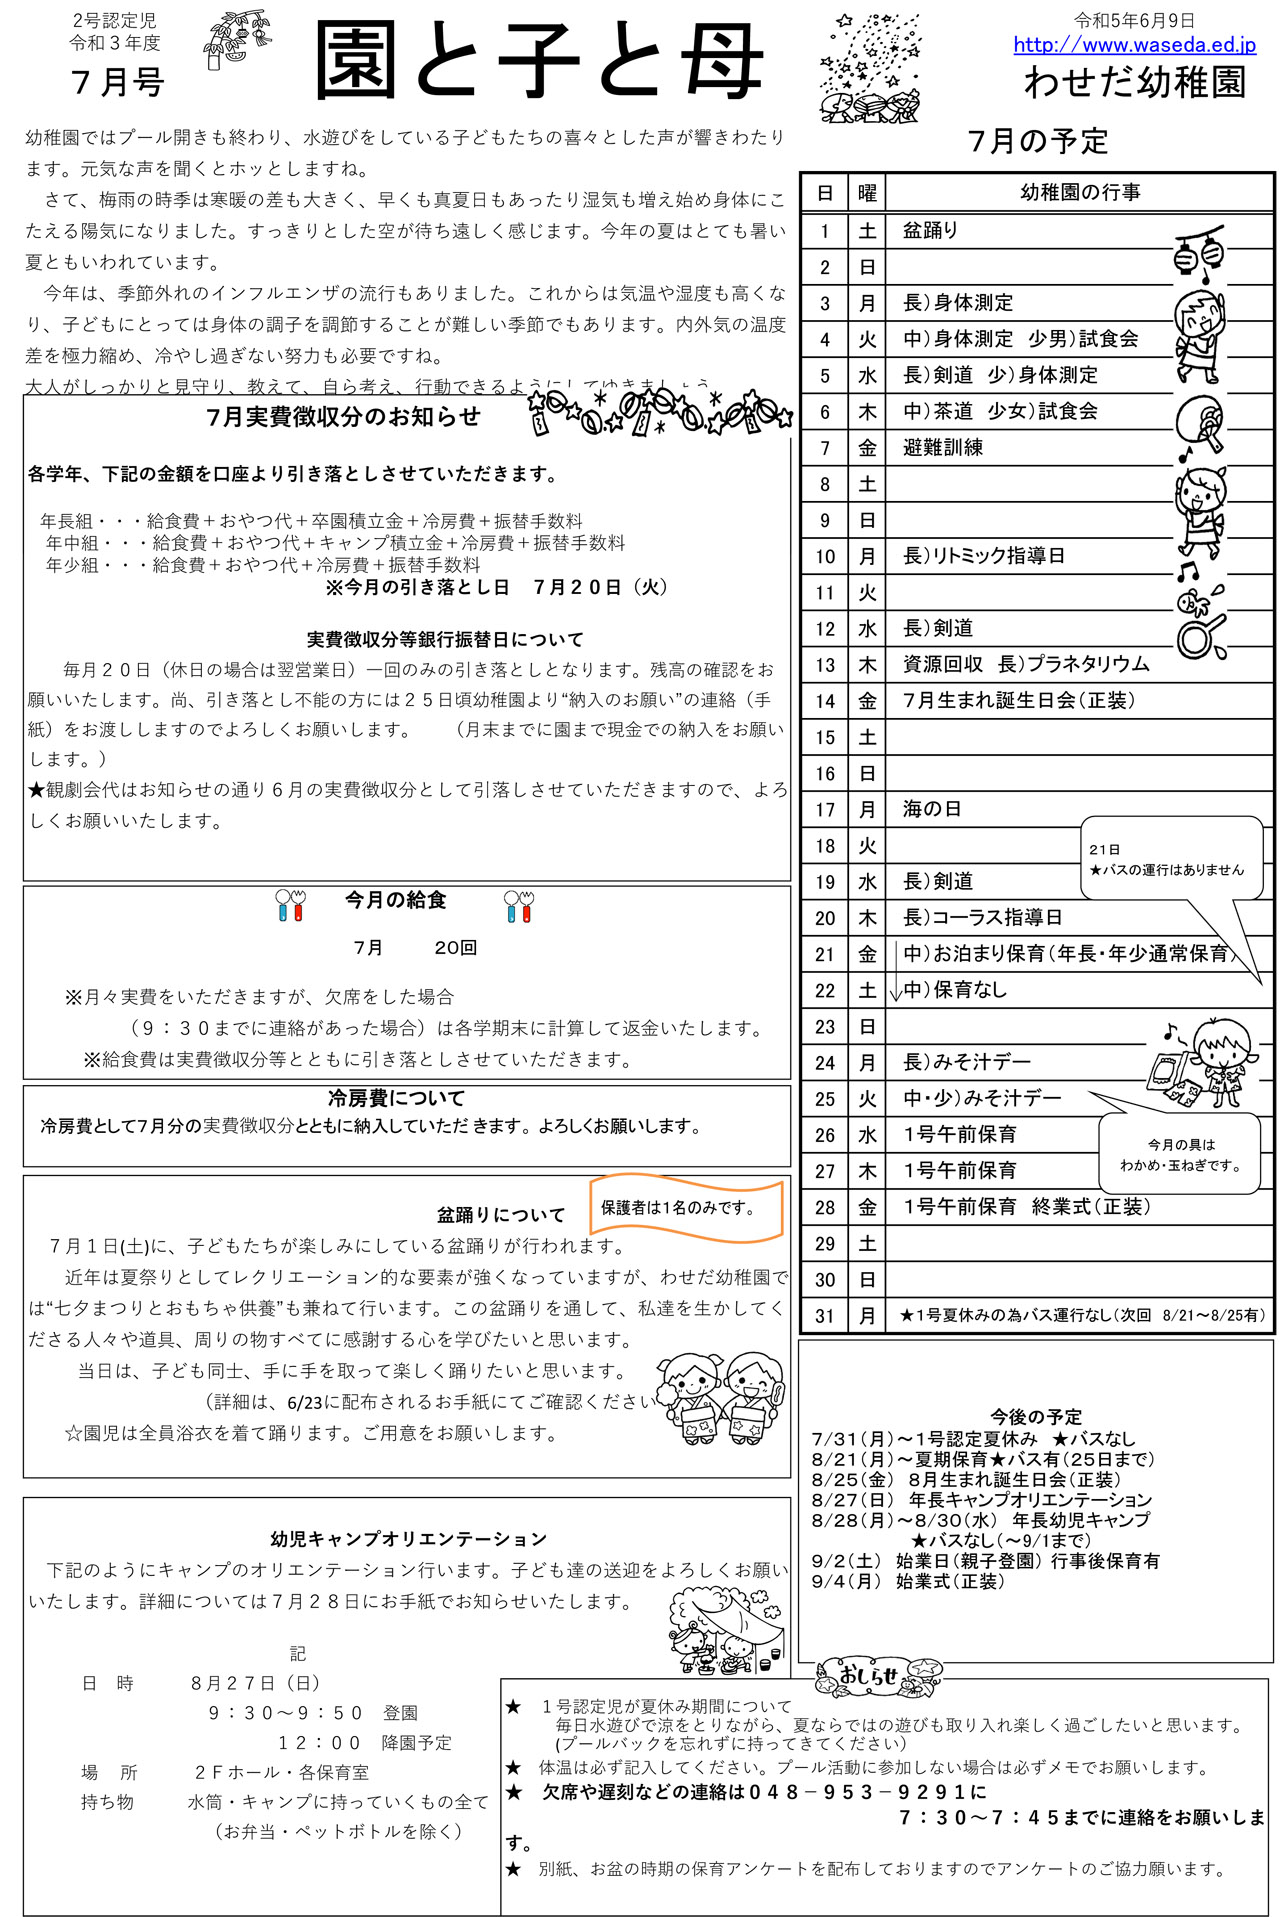 2号認定児
令和３年度
７月号
園と子と母
令和5年6月9日
http://www.waseda.ed.jp
わせだ幼稚園
幼稚園ではプール開きも終わり、水遊びをしている子どもたちの喜々とした声が響きわたり
ます。元気な声を聞くとホッとしますね。
さて、梅雨の時季は寒暖の差も大きく、早くも真夏日もあったり湿気も増え始め身体にこ
たえる陽気になりました。すっきりとした空が待ち遠しく感じます。今年の夏はとても暑い
夏ともいわれています。
今年は、季節外れのインフルエンザの流行もありました。これからは気温や湿度も高くな
り、子どもにとっては身体の調子を調節することが難しい季節でもあります。内外気の温度
差を極力縮め、冷やし過ぎない努力も必要ですね。
大人がしっかりと見守り、教えて、自ら考え、行動できるようにしてゆきましょう。
7月実費徴収分のお知らせ
各学年、下記の金額を口座より引き落としさせていただきます。
年長組・・・給食費＋おやつ代＋卒園積立金＋冷房費＋振替手数料
年中組・・・給食費＋おやつ代＋キャンプ積立金＋冷房費＋振替手数料
年少組・・・給食費＋おやつ代＋冷房費＋振替手数料
※今月の引き落とし日　７月２０日（火）
実費徴収分等銀行振替日について
毎月２０日（休日の場合は翌営業日）一回のみの引き落としとなります。残高の確認をお
願いいたします。尚、引き落とし不能の方には２５日頃幼稚園より“納入のお願い”の連絡（手
紙）をお渡ししますのでよろしくお願いします。　（月末までに園まで現金での納入をお願い
します。）
★観劇会代はお知らせの通り６月の実費徴収分として引落しさせていただきますので、よろ
しくお願いいたします。
今月の給食
7月　20回
※月々実費をいただきますが、欠席をした場合
（９：３０までに連絡があった場合）は各学期末に計算して返金いたします。
※給食費は実費徴収分等とともに引き落としさせていただきます。
冷房費について
冷房費として7月分の実費徴収分とともに納入していただきます。よろしくお願いします。
保護者は1名のみです。
盆踊りについて
７月１日(土)に、子どもたちが楽しみにしている盆踊りが行われます。
近年は夏祭りとしてレクリエーション的な要素が強くなっていますが、わせだ幼稚園で
は“七夕まつりとおもちゃ供養”も兼ねて行います。この盆踊りを通して、私達を生かしてく
ださる人々や道具、周りの物すべてに感謝する心を学びたいと思います。
当日は、子ども同士、手に手を取って楽しく踊りたいと思います。
（詳細は、6/23に配布されるお手紙にてご確認ください
☆園児は全員浴衣を着て踊ります。ご用意をお願いします。
幼児キャンプオリエンテーション
下記のようにキャンプのオリエンテーション行います。子ども達の送迎をよろしくお願い
いたします。詳細については７月２８日にお手紙でお知らせいたします。
記
日　時　８月２７日（日）
９：３０～９：５０　登園
１２：００　降園予定
場　所　２Ｆホール・各保育室
持ち物　水筒・キャンプに持っていくもの全て
（お弁当・ペットボトルを除く）
７月の予定
日　曜　幼稚園の行事
1　土　盆踊り
2　日
3　月　長）身体測定
4　火　中）身体測定　少男）試食会
5　水　長）剣道　少）身体測定
6　木　中）茶道　少女）試食会
7　金　避難訓練
8　土
9　日
10　月　長）リトミック指導日
11　火
12　水　長）剣道
13　木　資源回収　長）プラネタリウム
14　金　7月生まれ誕生日会（正装）
15　土
16　日
17　月　海の日
18　火
19　水　長）剣道
20　木　長）コーラス指導日
21　金　中）お泊まり保育（年長・年少通常保育）
22　土　中）保育なし
23　日
24　月　長）みそ汁デー
25　火　中・少）みそ汁デー
26　水　1号午前保育
27　木　1号午前保育
28　金　1号午前保育　終業式（正装）
29　土
30　日
31　月　★1号夏休みの為バス運行なし（次回　8/21～8/25有）
21日
★バスの運行はありません
今月の具は
わかめ・玉ねぎです。
今後の予定
7/31（月）～1号認定夏休み　★バスなし
8/21（月）～夏期保育★バス有（25日まで）
8/25（金）　8月生まれ誕生日会（正装）
8/27（日）　年長キャンプオリエンテーション
8/28（月）～8/30（水）　年長幼児キャンプ
★バスなし（～9/1まで）
9/2（土）　始業日（親子登園）行事後保育有
9/4（月）　始業式（正装）
おしらせ
★　１号認定児が夏休み期間について
毎日水遊びで涼をとりながら、夏ならではの遊びも取り入れ楽しく過ごしたいと思います。
（プールバックを忘れずに持ってきてください）
★　体温は必ず記入してください。プール活動に参加しない場合は必ずメモでお願いします。
★　欠席や遅刻などの連絡は０４８－９５３－９２９１に
７：３０～７：４５までに連絡をお願いしま
す。
★　別紙、お盆の時期の保育アンケートを配布しておりますのでアンケートのご協力願います。